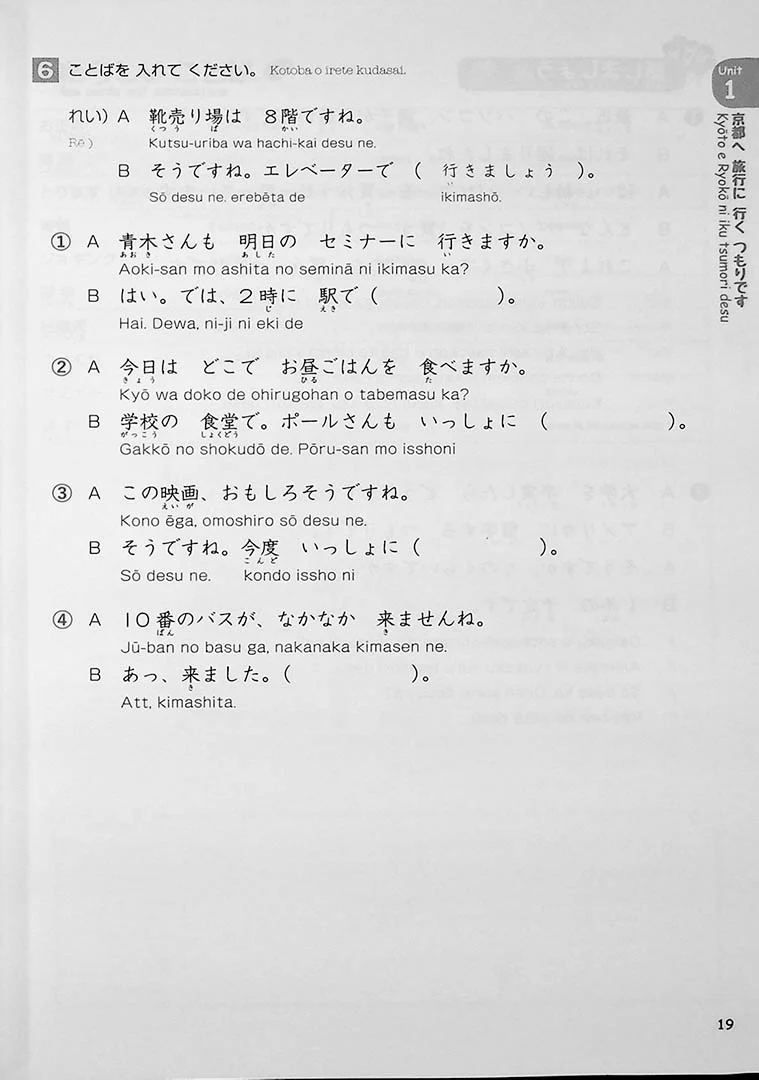 6 ことばを 入れて ください。 Kotoba o irete kudasai.
れい) A 靴売り場は 8階ですね。
くつう ば かい
Rē) Kutsu-uriba wa hachi-kai desu ne.
B そうですね。エレベーターで ( 行きましょう )。
い
Sō desu ne. erebēta de ikimashō.
① A 青木さんも 明日の セミナーに 行きますか。
あおき あした い
Aoki-san mo ashita no seminā ni ikimasu ka?
B はい。では、2時に 駅で ( )。
じ えき
Hai. Dewa, ni-ji ni eki de
② A 今日は どこで お昼ごはんを 食べますか。
きょう ひる た
Kyō wa doko de ohirugohan o tabemasu ka?
B 学校の 食堂で。ポールさんも いっしょに ( )。
がっこう しょくどう
Gakkō no shokudō de. Pōru-san mo isshoni
③ A この映画、おもしろそうですね。
えいが
Kono ēga, omoshiro sō desu ne.
B そうですね。今度 いっしょに ( )。
こんど
Sō desu ne. kondo issho ni
④ A 10番のバスが、なかなか 来ませんね。
ばん き
Jū-ban no basu ga, nakanaka kimasen ne.
B あっ、来ました。( )。
き
Att, kimashita.
Unit
1
京都へ 旅行に 行く つもりです
Kyōto e Ryokō ni iku tsumori desu
19